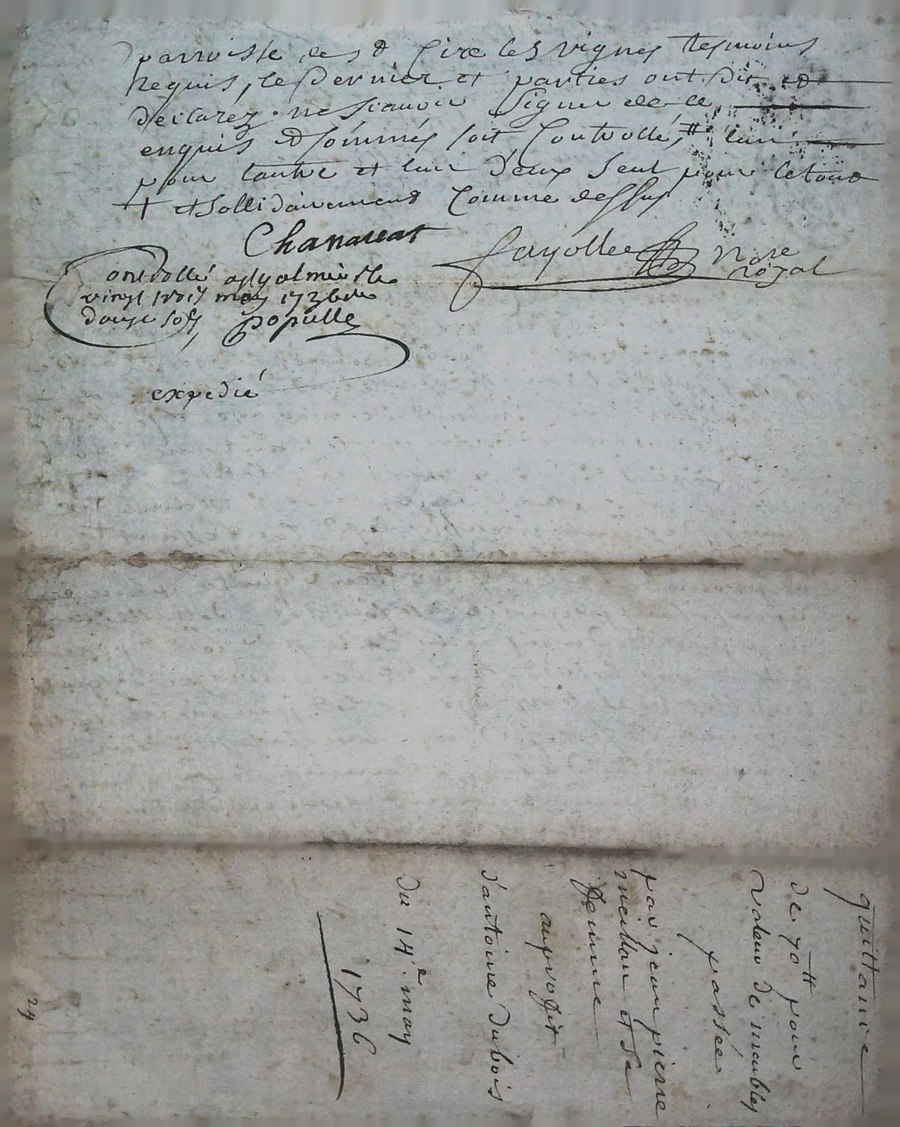 parroisse de St Cire les vignes tesmoins
requis, le dernier et parties ont dit et
declarez ne sçavoir signer de ce
enquis et sommés soit Controllé, # l'un
pour l'autre et l'un d'eux seul pour le tout
+ et sollidairement Comme dessus
Chanavat
fayolle Nore
royal
Controllé a st galmier le
vingt trois may 1736
douze sols populle
expedié
quittance
de 70tt pour
valeur de meubles
passée
par jean pierre
meillan et sa
femme
au profit
d'antoine dubois
du 14e may
1736
29